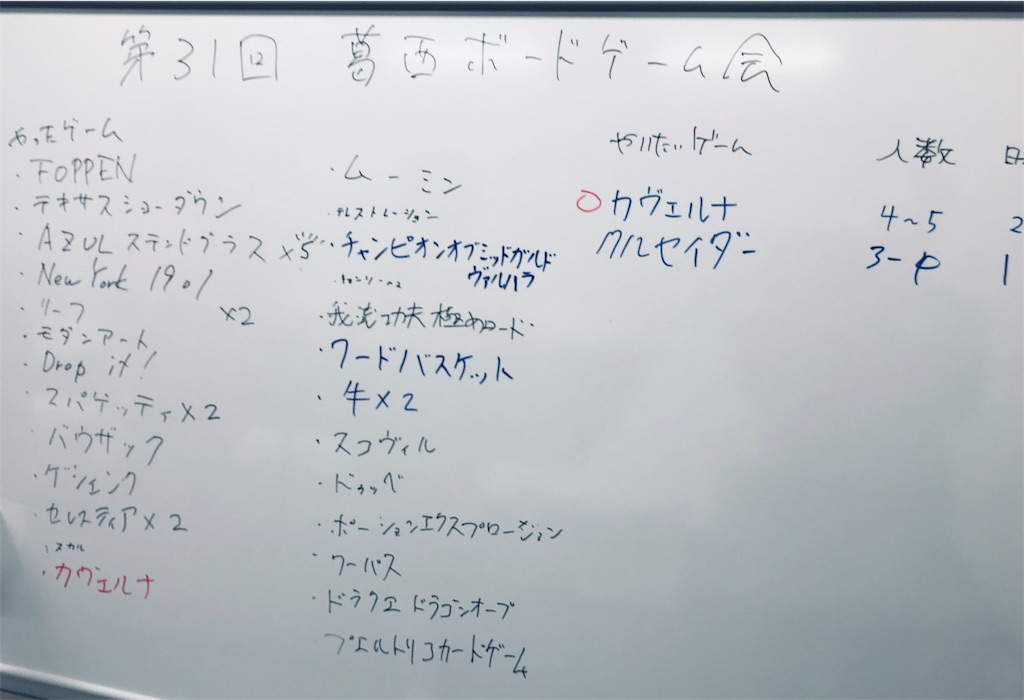 第31回 12 葛西ボードゲーム会
やったゲーム
・FOPPEN
・テキサスショーダウン
・AZUL ステンドグラス ×5
・New York 1901
・リーフ ×2
・モダンアート
・Drop it!
・スパゲッティ×2
バウザック
・ゲシェンク
・セレスティア×2
、スカル
・カヴェルナ
・ムーミン
・テレストレーション
・チャンピオンオブミッドガルド
ヴァルハラ
・我流功夫極めロード
・ワードバスケット
・牛×2
・スコヴィル
・ドゥッペ
・ポーションエクスプロージョン
・ワーパス
・ドラクエ ドラゴンオーブ
プエルトリコカードゲーム
やりたいゲーム 人数
○カヴェルナ 4~5 2
クルセイダー 3-4 1